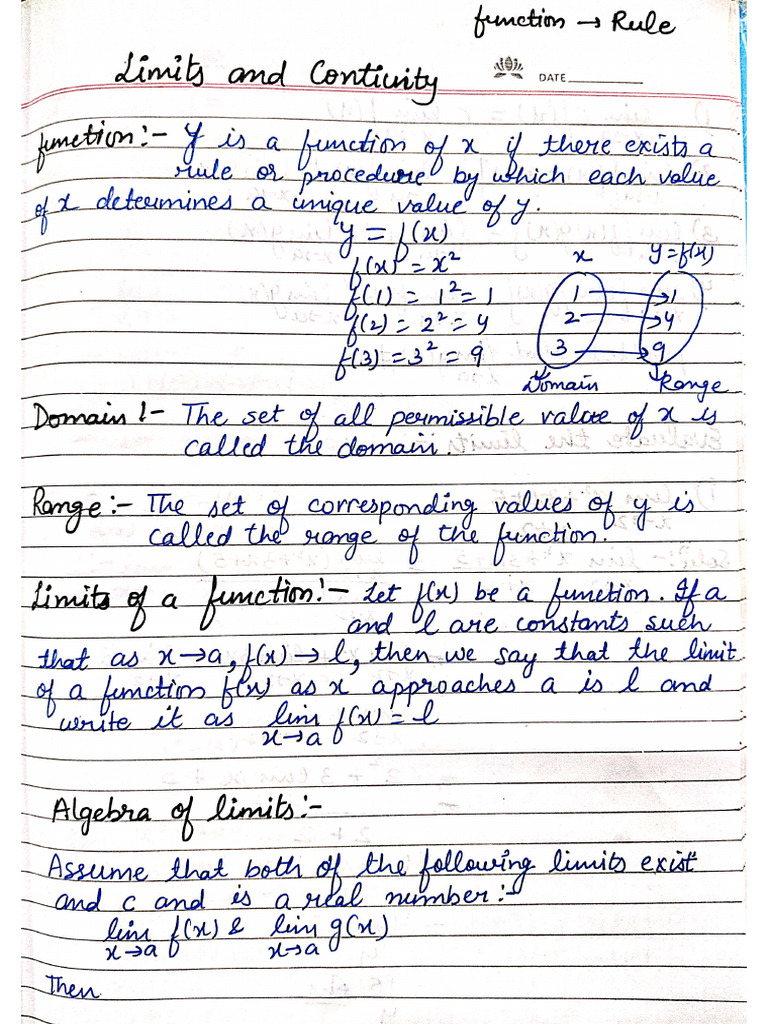 function → Rule
Limits and Contivity
DATE
function:- Y is a function of x if there exists a
rule or procedure by which each value
of x determines a unique value of y.
y = f(x)
f(x) = x²
x y=f(x)
f(1) = 1² = 1
1 → 1
f(2) = 2² = 4
2 → 4
f(3) = 3² = 9
3 → 9
Domain Range
Domain !- The set of all permissible value of x is
called the domain.
Range:- The set of corresponding values of y is
called the range of the function.
Limits of a function:- Let f(x) be a function. If a
and l are constants such
that as x→a, f(x) → l, then we say that the limit
of a function f(x) as x approaches a is l and
write it as lim f(x) = l
x→a
Algebra of limits:-
Assume that both of the following limits exist
and c and is a real number:-
lim f(x) & lim g(x)
x→a x→a
Then